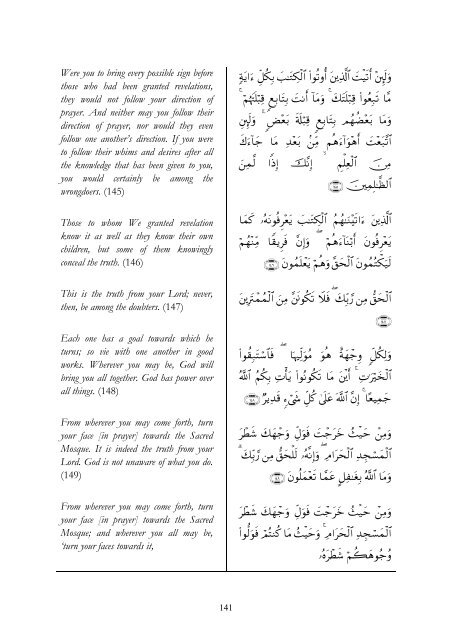 Were you to bring every possible sign before
those who had been granted revelations,
they would not follow your direction of
prayer. And neither may you follow their
direction of prayer, nor would they even
follow one another's direction. If you were
to follow their whims and desires after all
the knowledge that has been given to you,
you would certainly be among the
wrongdoers. (145)
وَلَئِنْ أَتَيْتَ ٱلَّذِينَ أُوتُوا۟ ٱلْكِتَـٰبَ بِكُلِّ ءَايَةٍ
مَّا تَبِعُوا۟ قِبْلَتَكَ ۚ وَمَآ أَنتَ بِتَابِعٍ قِبْلَتَهُمْ ۚ
وَمَا بَعْضُهُم بِتَابِعٍ قِبْلَةَ بَعْضٍ ۚ وَلَئِنِ
ٱتَّبَعْتَ أَهْوَآءَهُم مِّنۢ بَعْدِ مَا جَآءَكَ
مِنَ ٱلْعِلْمِ ۙ إِنَّكَ إِذًا لَّمِنَ
ٱلظَّـٰلِمِينَ
Those to whom We granted revelation
know it as well as they know their own
children, but some of them knowingly
conceal the truth. (146)
ٱلَّذِينَ ءَاتَيْنَـٰهُمُ ٱلْكِتَـٰبَ يَعْرِفُونَهُۥ كَمَا
يَعْرِفُونَ أَبْنَآءَهُمْ ۖ وَإِنَّ فَرِيقًا مِّنْهُمْ
لَيَكْتُمُونَ ٱلْحَقَّ وَهُمْ يَعْلَمُونَ
This is the truth from your Lord; never,
then, be among the doubters. (147)
ٱلْحَقُّ مِن رَّبِّكَ ۖ فَلَا تَكُونَنَّ مِنَ ٱلْمُمْتَرِينَ
Each one has a goal towards which he
turns; so vie with one another in good
works. Wherever you may be, God will
bring you all together. God has power over
all things. (148)
وَلِكُلٍّ وِجْهَةٌ هُوَ مُوَلِّيهَا ۖ فَٱسْتَبِقُوا۟
ٱلْخَيْرَٰتِ ۚ أَيْنَ مَا تَكُونُوا۟ يَأْتِ بِكُمُ ٱللَّهُ
جَمِيعًا ۚ إِنَّ ٱللَّهَ عَلَىٰ كُلِّ شَىْءٍ قَدِيرٌ
From wherever you may come forth, turn
your face [in prayer] towards the Sacred
Mosque. It is indeed the truth from your
Lord. God is not unaware of what you do.
(149)
وَمِنْ حَيْثُ خَرَجْتَ فَوَلِّ وَجْهَكَ شَطْرَ
ٱلْمَسْجِدِ ٱلْحَرَامِ ۖ وَإِنَّهُۥ لَلْحَقُّ مِن رَّبِّكَ ۗ
وَمَا ٱللَّهُ بِغَـٰفِلٍ عَمَّا تَعْمَلُونَ
From wherever you may come forth, turn
your face [in prayer] towards the Sacred
Mosque; and wherever you all may be,
'turn your faces towards it,
وَمِنْ حَيْثُ خَرَجْتَ فَوَلِّ وَجْهَكَ شَطْرَ
ٱلْمَسْجِدِ ٱلْحَرَامِ ۚ وَحَيْثُ مَا كُنتُمْ فَوَلُّوا۟
وُجُوهَكُمْ شَطْرَهُۥ
141